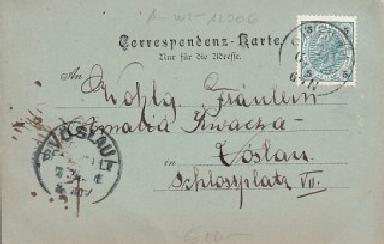 A-WI-11200G
Correspondenz-Karte
Nur für die Adresse.
An
Wohlg. Fräulein
Amalia Kwacza
in Voslau.
Schlossplatz VII.
VÖSLAU
5 5